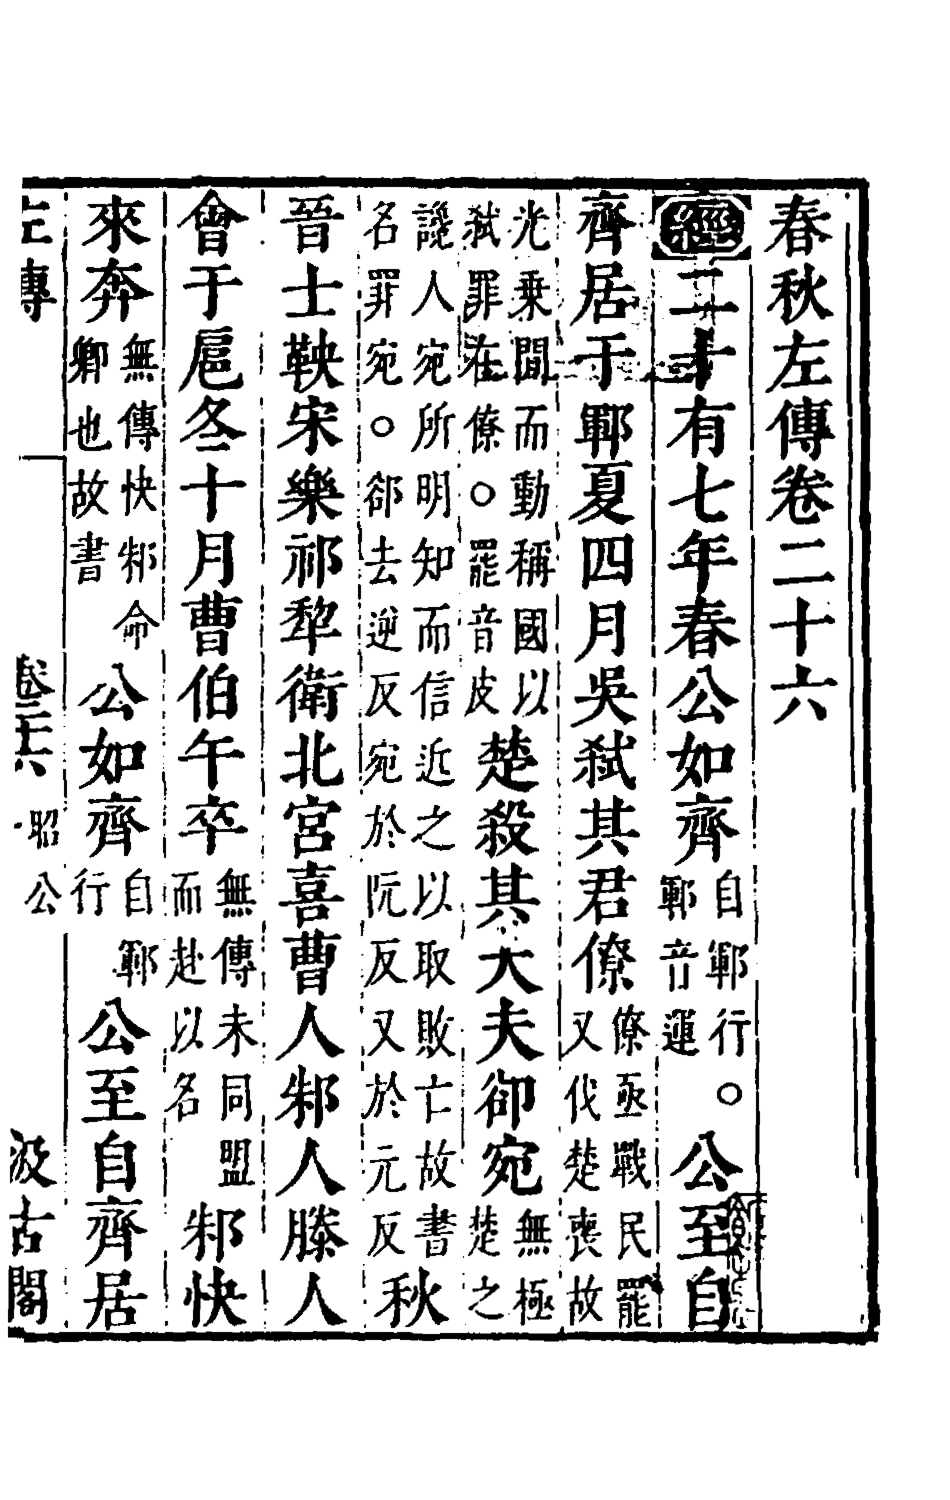 春秋左傳卷二十六
經二十有七年春公如齊自鄆行○鄆音運公至自
齊居于鄆夏四月吳弑其君僚僚亟戰民罷又伐楚喪故
光乗間而動稱國以弑罪在僚○罷音皮楚殺其大夫郤宛無極楚之
讒人宛所明知而信近之以取敗亡故書名罪宛○郤去逆反宛於阮反又於元反秋
晉士鞅宋樂祁犂衛北宮喜曹人邾人滕人
會于扈冬十月曹伯午卒無傳未同盟而赴以名邾快
來奔無傳快邾命卿也故書公如齊自鄆行公至自齊居
左傳 卷二十六 昭公 汲古閣